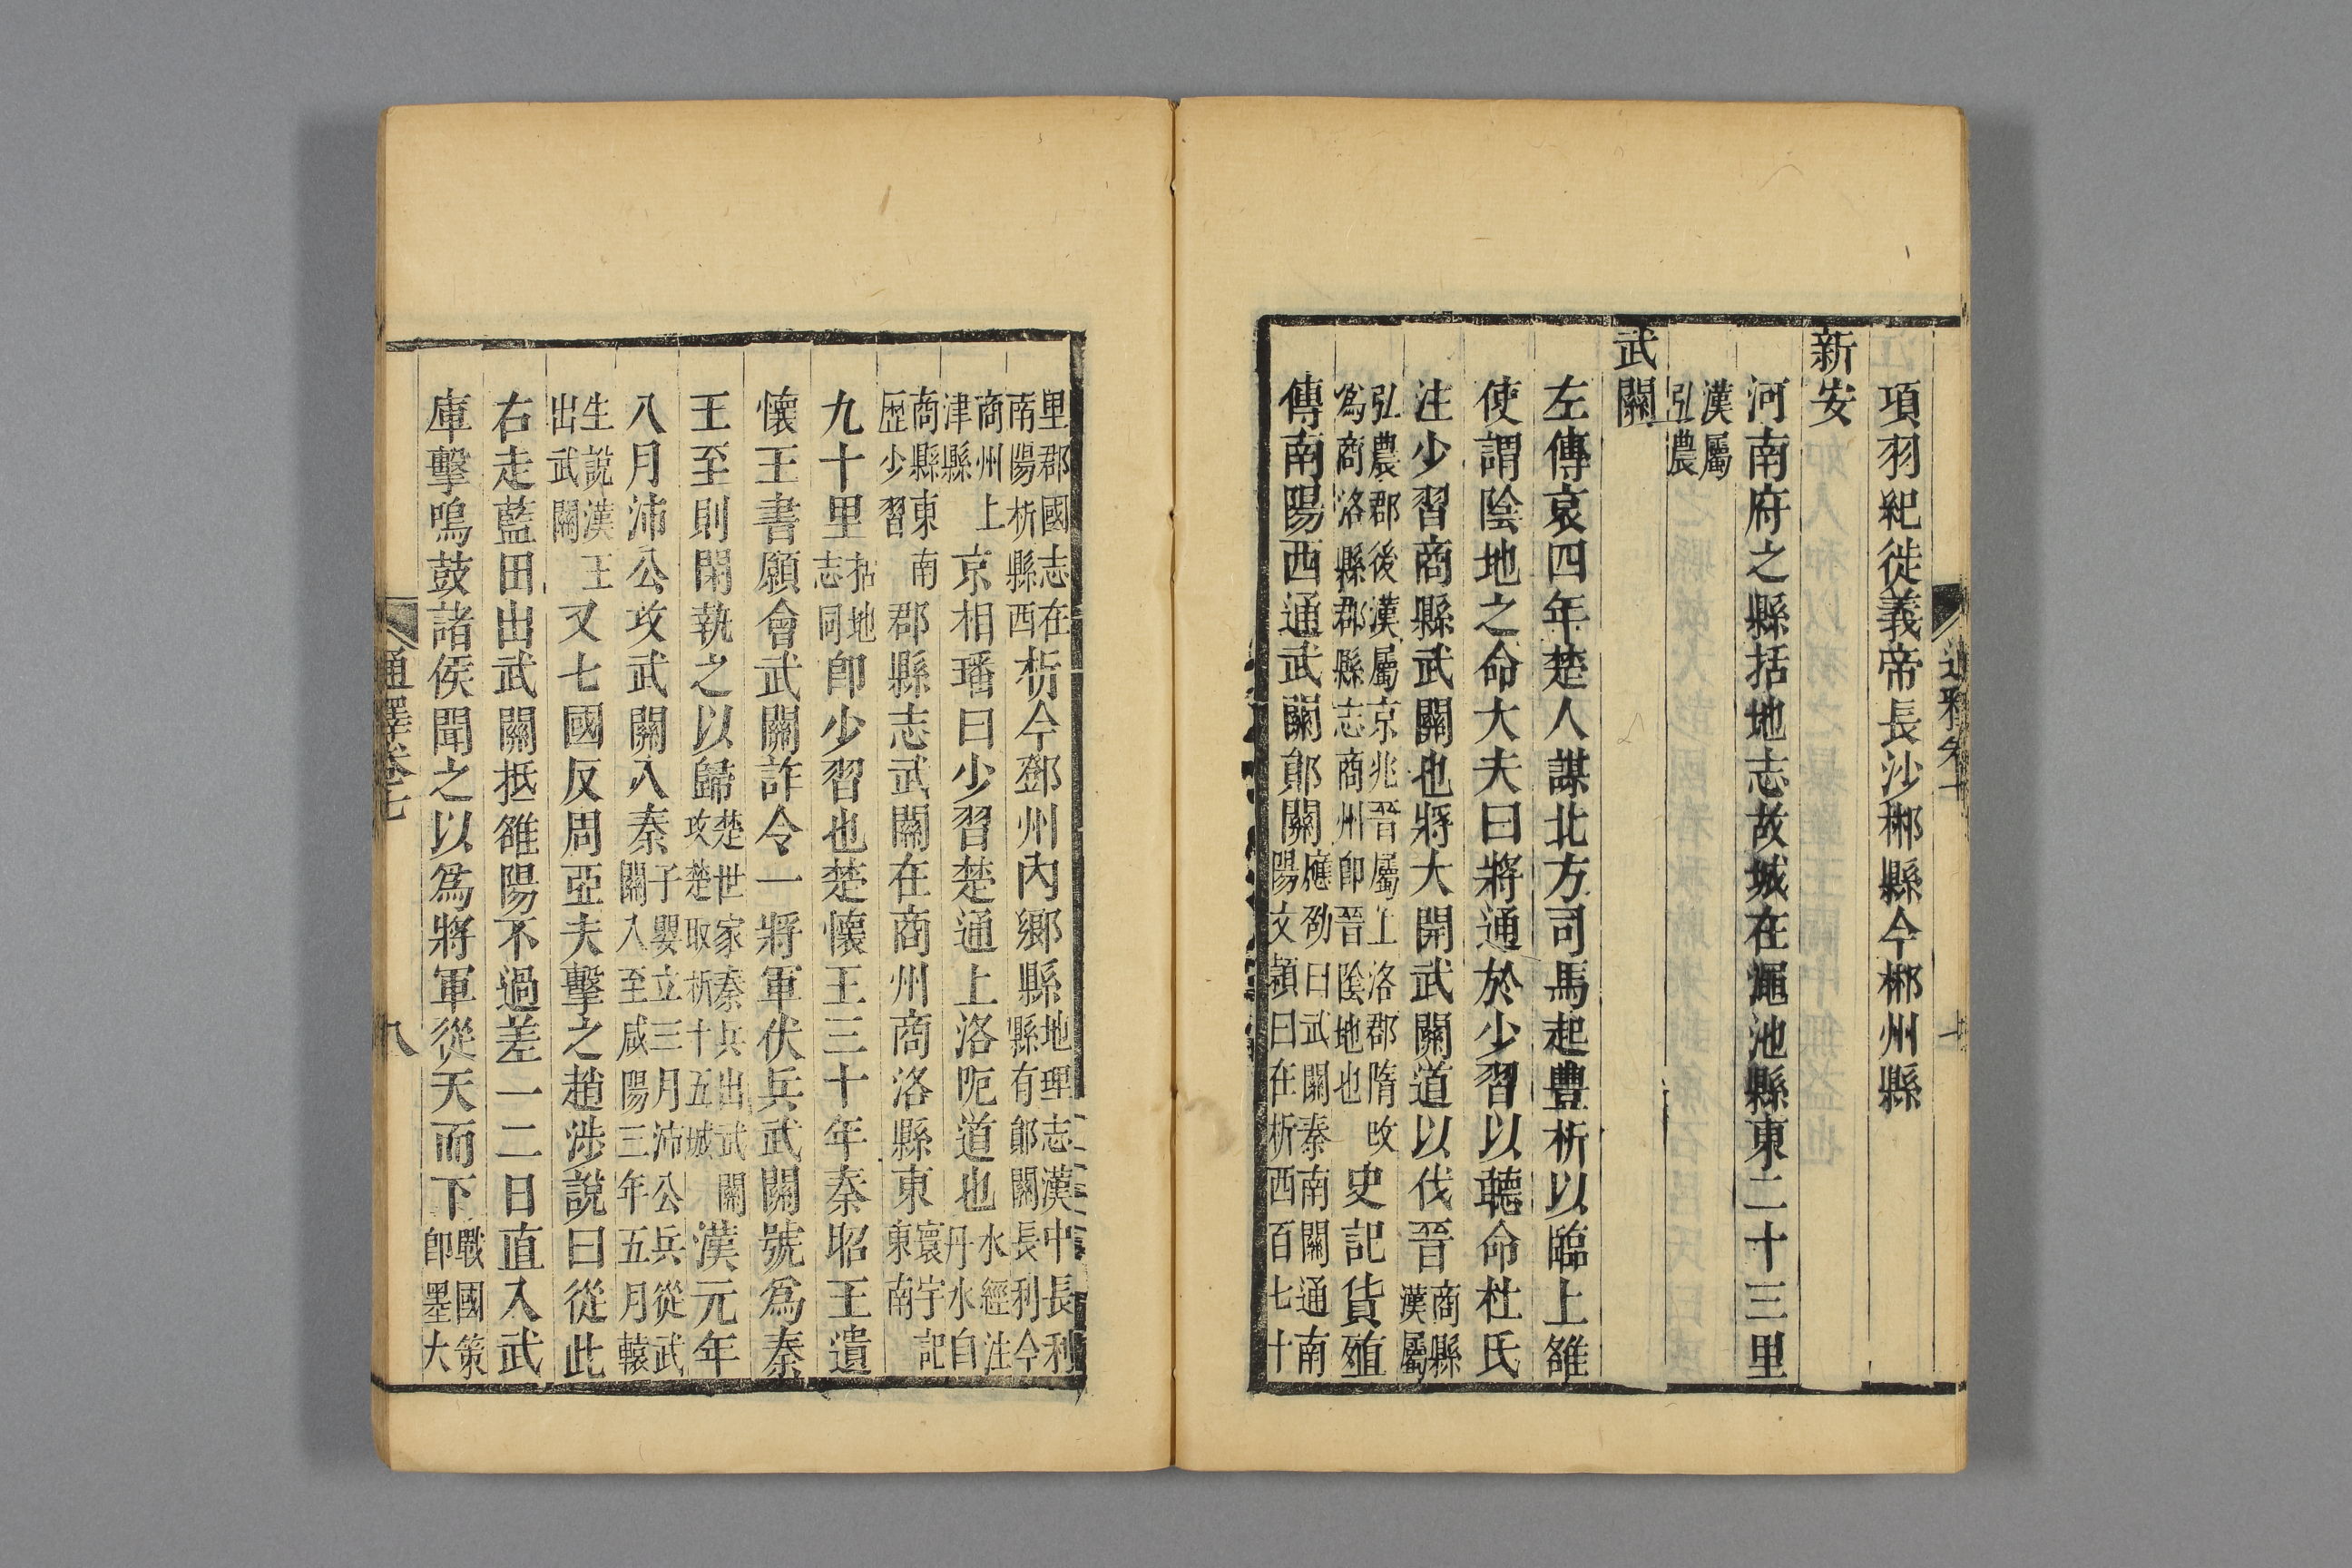 項羽紀徙義帝長沙郴縣今郴州縣
新安
河南府之縣括地志故城在澠池縣東二十三里
漢屬
弘農
武關
左傳哀四年楚人謀北方司馬起豐析以臨上雒
使謂陰地之命大夫曰將通於少習以聽命杜氏
注少習商縣武關也將大開武關道以伐晉商縣漢屬
弘農郡後漢屬京兆晉屬上洛郡隋改為商洛縣郡縣志商州卽晉陰地也史記貨殖
傳南陽西通武關鄖關應劭曰武關秦南關通南陽文潁曰在析西百七十
里郡國志在南陽析縣西析今鄧州內鄉縣地理志漢中長利縣有鄖關長利今
商州上津縣京相璠曰少習楚通上洛阨道也水經注丹水自
商縣東南歷少習郡縣志武關在商州商洛縣東寰宇記東南
九十里括地志同卽少習也楚懷王三十年秦昭王遺
懷王書願會武關詐令一將軍伏兵武關號為秦
王至則閉執之以歸楚世家秦兵出武關攻楚取析十五城漢元年
八月沛公攻武關入秦子嬰立三月沛公兵從武關入至咸陽三年五月轅
生說漢王出武關又七國反周亞夫擊之趙涉說曰從此
右走藍田出武關抵雒陽不過差一二日直入武
庫擊鳴鼓諸侯聞之以為將軍從天而下戰國策卽墨大
通釋卷七
八